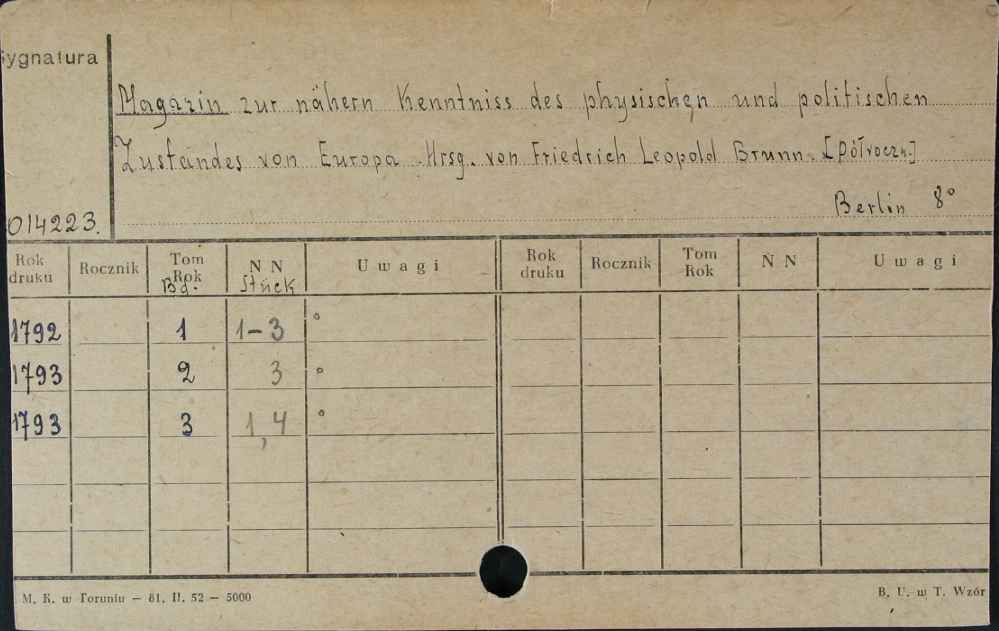 Sygnatura
Magazin zur nähern Kenntniss des physischen und politischen
Zustandes von Europa. Hrsg. von Friedrich Leopold Brunn. [Półrocz.]
Berlin 8°
014223.
Rok druku Rocznik Tom Rok Bd. N N Stück Uwagi Rok druku Rocznik Tom Rok N N Uwagi
1792 1 1-3 °
1793 2 3 °
1793 3 1,4 °
M. K. w Toruniu — 81. II. 52 — 5000
B. U. w T. Wzór